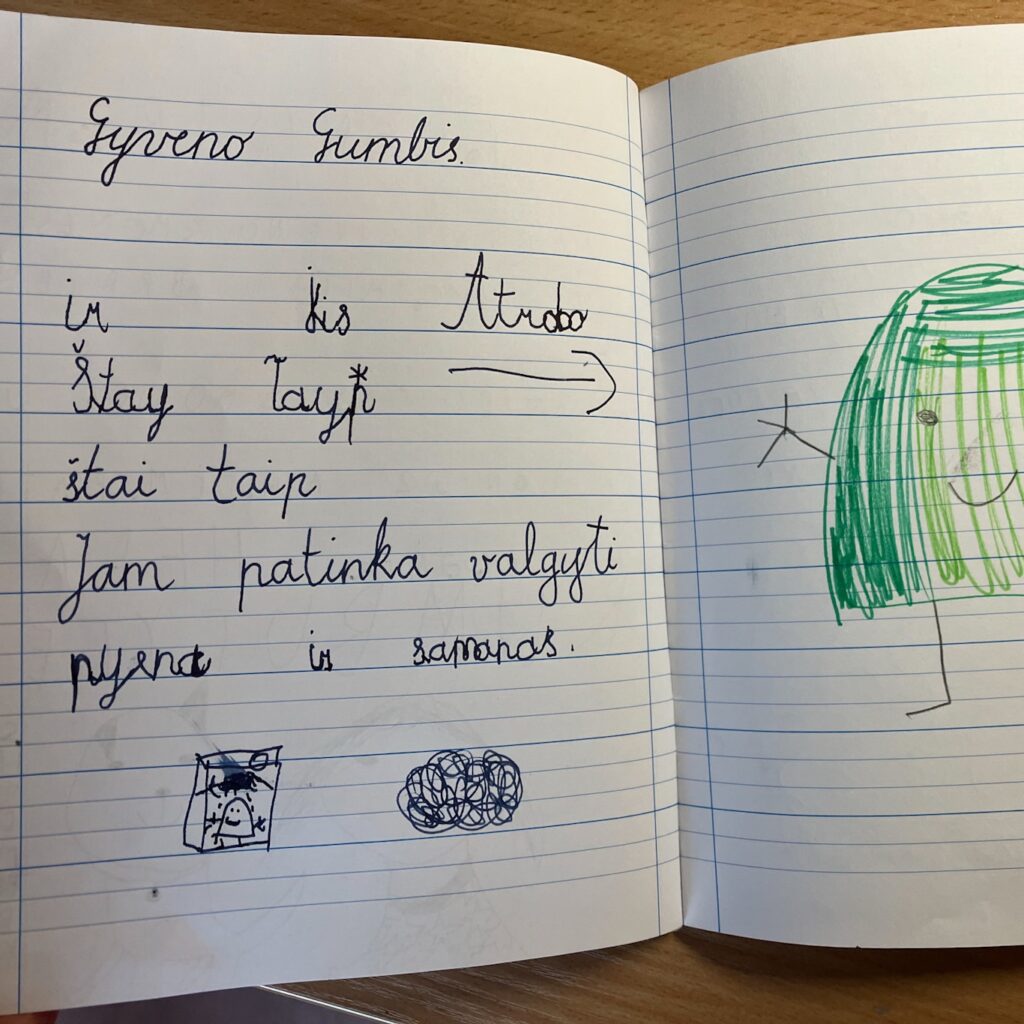 Gyveno Gumbis.
ir jis Atrodo
Štay Tayp
štai taip
Jam patinka valgyti
pyena ir samanas.